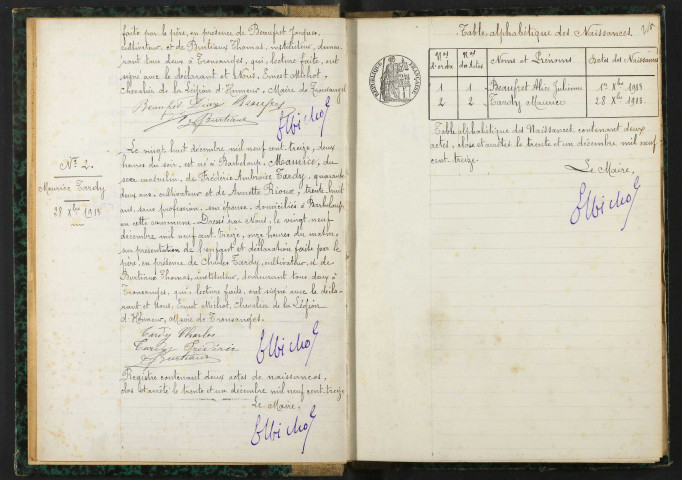 faite par le père, en présence de Beaufret Jacques,
cultivateur et de Burtiaux Thomas, instituteur, demeu-
rant tous deux à Transanges, qui, lecture faite, ont
signé avec le déclarant et Nous, Ernest Michot,
Chevalier de la Légion d'Honneur, Maire de Transanges.
Beaufret
Burtiaux
Nº 2.
Maurice Tardy
28 Xbre 1913
Le vingt huit décembre mil neuf cent treize, deux
heures du soir, est né à Barbeloup, Maurice, du
sexe masculin, de Frédéric Ambroise Tardy, quarante
deux ans, cultivateur et de Annette Rioux, trente huit
ans, sans profession, son épouse, domiciliés à Barbeloup,
en cette commune. Dressé par Nous, le vingt neuf
décembre mil neuf cent treize, onze heures du matin,
sur présentation de l'enfant et déclaration faite par le
père, en présence de Charles Tardy, cultivateur, et de
Burtiaux Thomas, instituteur, demeurant tous deux à
Transanges, qui, lecture faite, ont signé avec le décla-
rant et Nous, Ernest Michot, Chevalier de la Légion
d'Honneur, Maire de Transanges.
Tardy Charles
Tardy Frédéric
Burtiaux
Registre contenant deux actes de naissances,
clos et arrêté le trente et un décembre mil neuf cent treize
Le Maire,
Table alphabétique des Naissances
Nos d'ordre Nos des Actes Noms et Prénoms Dates des Naissances
1 1 Beaufret Alice Julienne 1er Xbre 1913
2 2 Tardy Maurice 28 Xbre 1913.
Table alphabétique des Naissances, contenant deux
actes, close et arrêtée le trente et un décembre mil neuf
cent treize.
Le Maire,